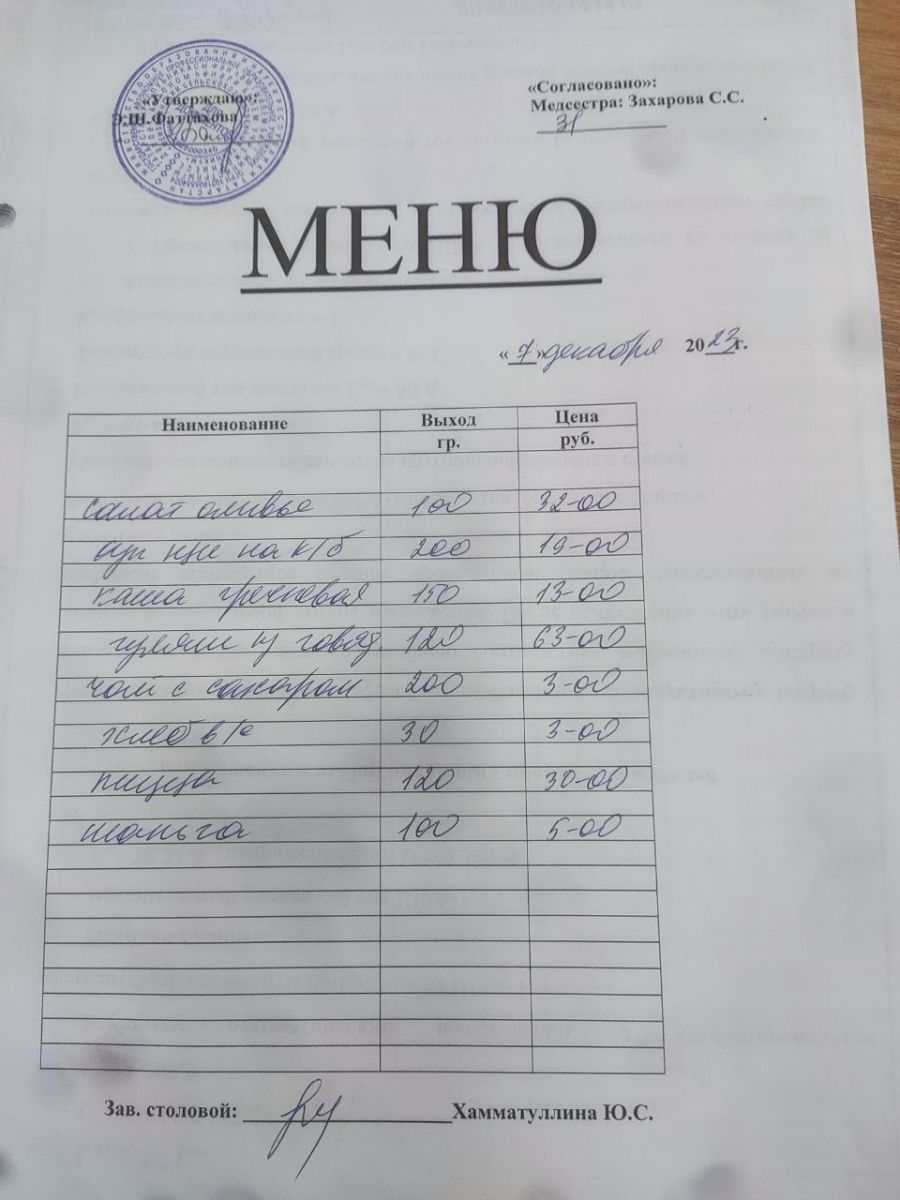 «Утверждаю»:
Э.Ш.Фаттахова
«Согласовано»:
Медсестра: Захарова С.С.
МЕНЮ
«7» декабря 2023г.
Наименование Выход гр. Цена руб.
салат оливье 100 32-00
суп щи на к/б 200 19-00
каша гречневая 150 13-00
гуляш из говяд 120 63-00
чай с сахаром 200 3-00
хлеб 30 3-00
пицца 120 30-00
шаньга 100 5-00
Зав. столовой: Хамматуллина Ю.С.